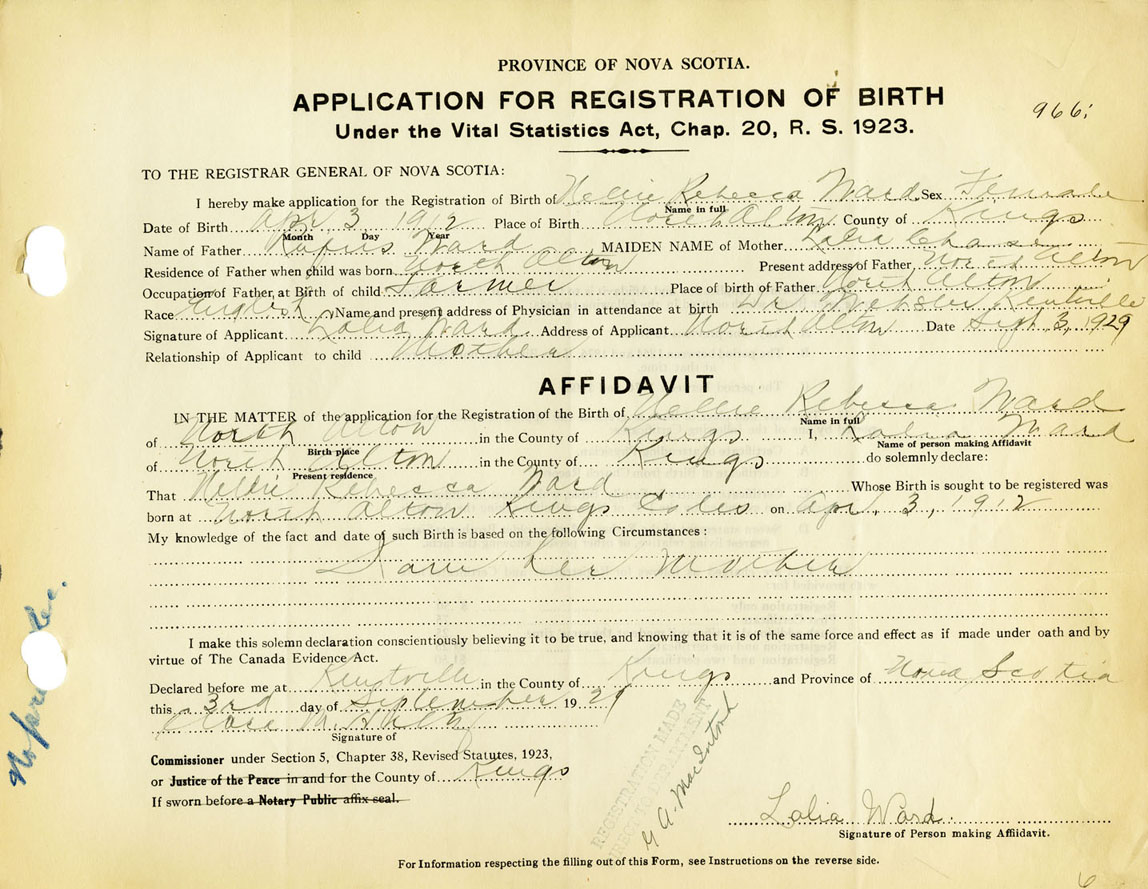 PROVINCE OF NOVA SCOTIA.
APPLICATION FOR REGISTRATION OF BIRTH
966
Under the Vital Statistics Act, Chap. 20, R. S. 1923.
TO THE REGISTRAR GENERAL OF NOVA SCOTIA:
I hereby make application for the Registration of Birth of Nellie Rebecca Ward Sex Female
Name in full
Date of Birth Apr 3 1912 Place of Birth North Alton County of Kings
Month Day Year
Name of Father Rufus Ward MAIDEN NAME of Mother Lalia Chase
Residence of Father when child was born North Alton Present address of Father North Alton
Occupation of Father, at Birth of child Farmer Place of birth of Father North Alton
Race English Name and present address of Physician in attendance at birth Dr. Webster Kentville
Signature of Applicant Lalia Ward Address of Applicant North Alton Date Sept 3, 1929
Relationship of Applicant to child Mother
AFFIDAVIT
IN THE MATTER of the application for the Registration of the Birth of Nellie Rebecca Ward
Name in full
of North Alton in the County of Kings I, Lalia Ward
Birth place Name of person making Affidavit
of North Alton in the County of Kings do solemnly declare:
Present residence
That Nellie Rebecca Ward Whose Birth is sought to be registered was
born at North Alton Kings Co on Apr. 3, 1912
My knowledge of the fact and date of such Birth is based on the following Circumstances :
I am her Mother
I make this solemn declaration conscientiously believing it to be true, and knowing that it is of the same force and effect as if made under oath and by
virtue of The Canada Evidence Act.
Declared before me at Kentville in the County of Kings and Province of Nova Scotia
this 3rd day of September 1929
Signature of
Commissioner under Section 5, Chapter 38, Revised Statutes, 1923,
or Justice of the Peace in and for the County of Kings
If sworn before a Notary Public affix seal.
REGISTRATION MADE
DEPARTMENT
A. MacIntosh
Lalia Ward
Signature of Person making Affidavit.
For Information respecting the filling out of this Form, see Instructions on the reverse side.
6